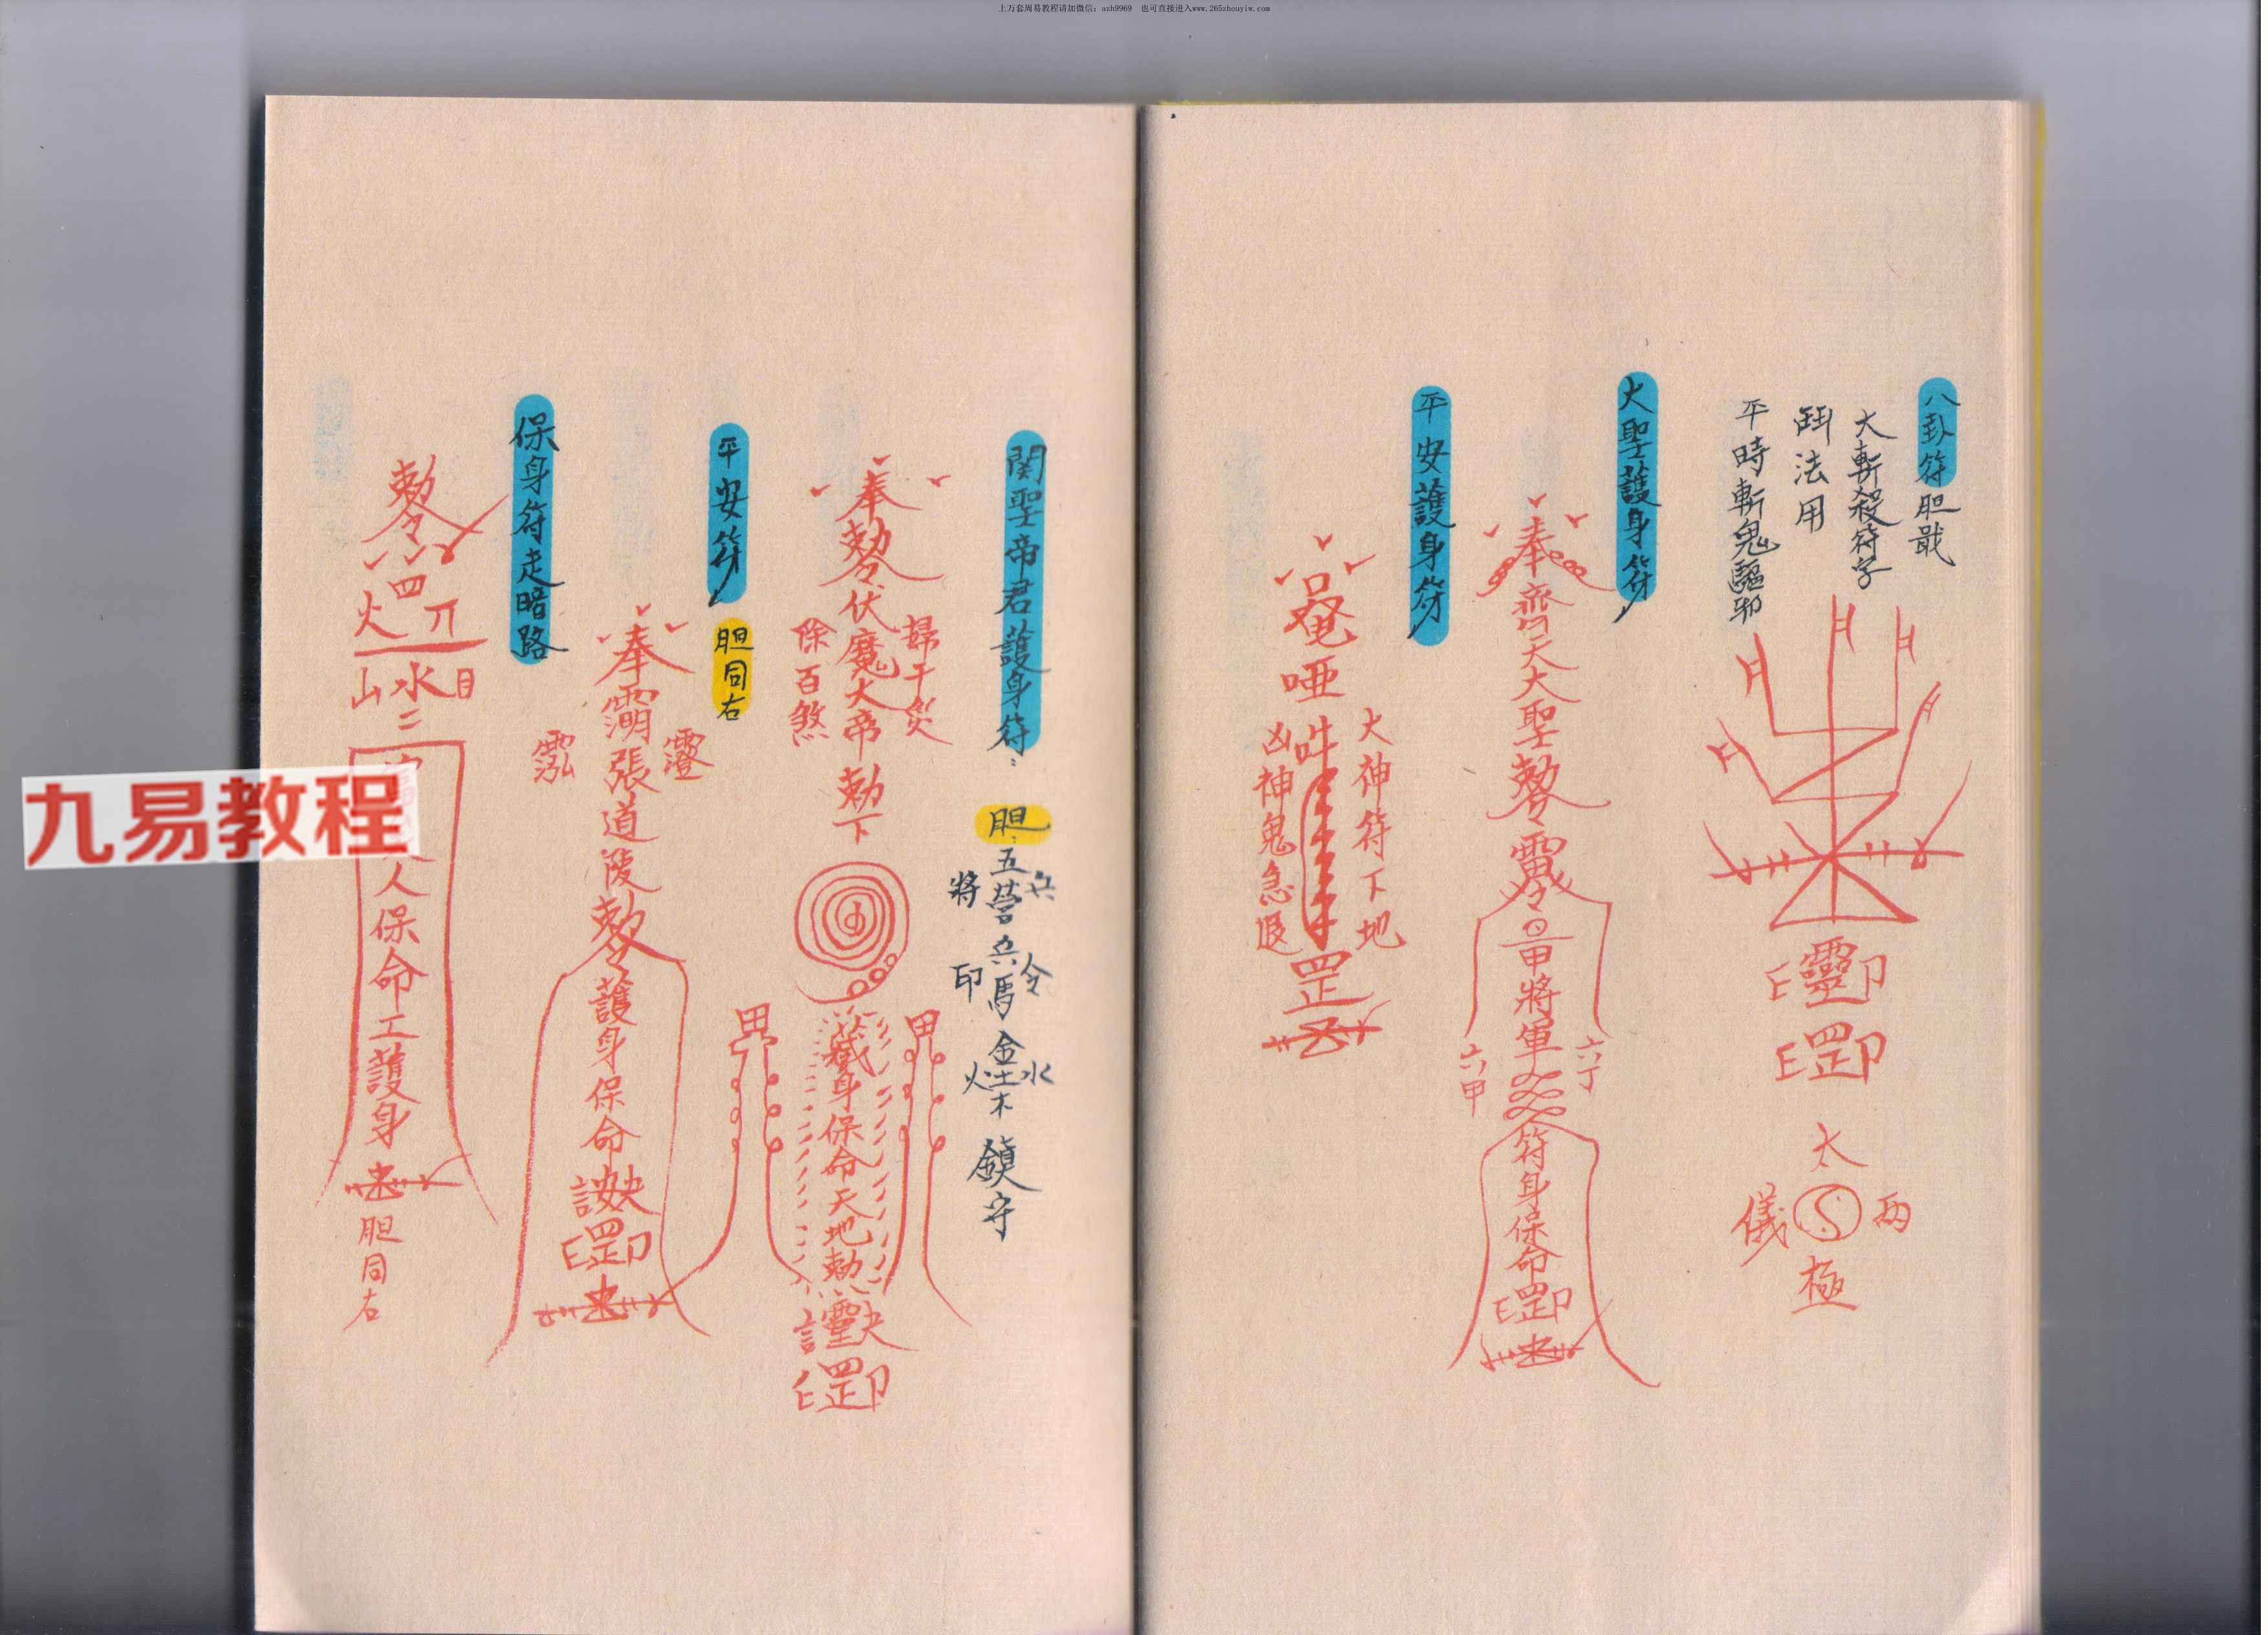 上万套周易教程请加微信：azh9969 也可直接进入www.265zhouyiw.com
八卦符胆戢
大斬殺符字
鬪法用
平時斬鬼驅邪
太
兩
儀
極
大聖護身符
奉齊天大聖
甲將軍
六丁
六甲
符身保命
罡印
平安護身符
唵
啞吽
大神符下地
凶神鬼急退
罡
関聖帝君護身符：
胆：五營兵馬
兵
將
令
印
金
水
火
土
木
鎮守
奉勅令伏魔大帝勅下
掃千災
除百煞
藏身保命天地勅
平安符
胆同右
奉
張道陵勅令
護身保命
保身符走暗路
勅令
四
火
山水目
二
人保命工護身
胆同右
九易教程